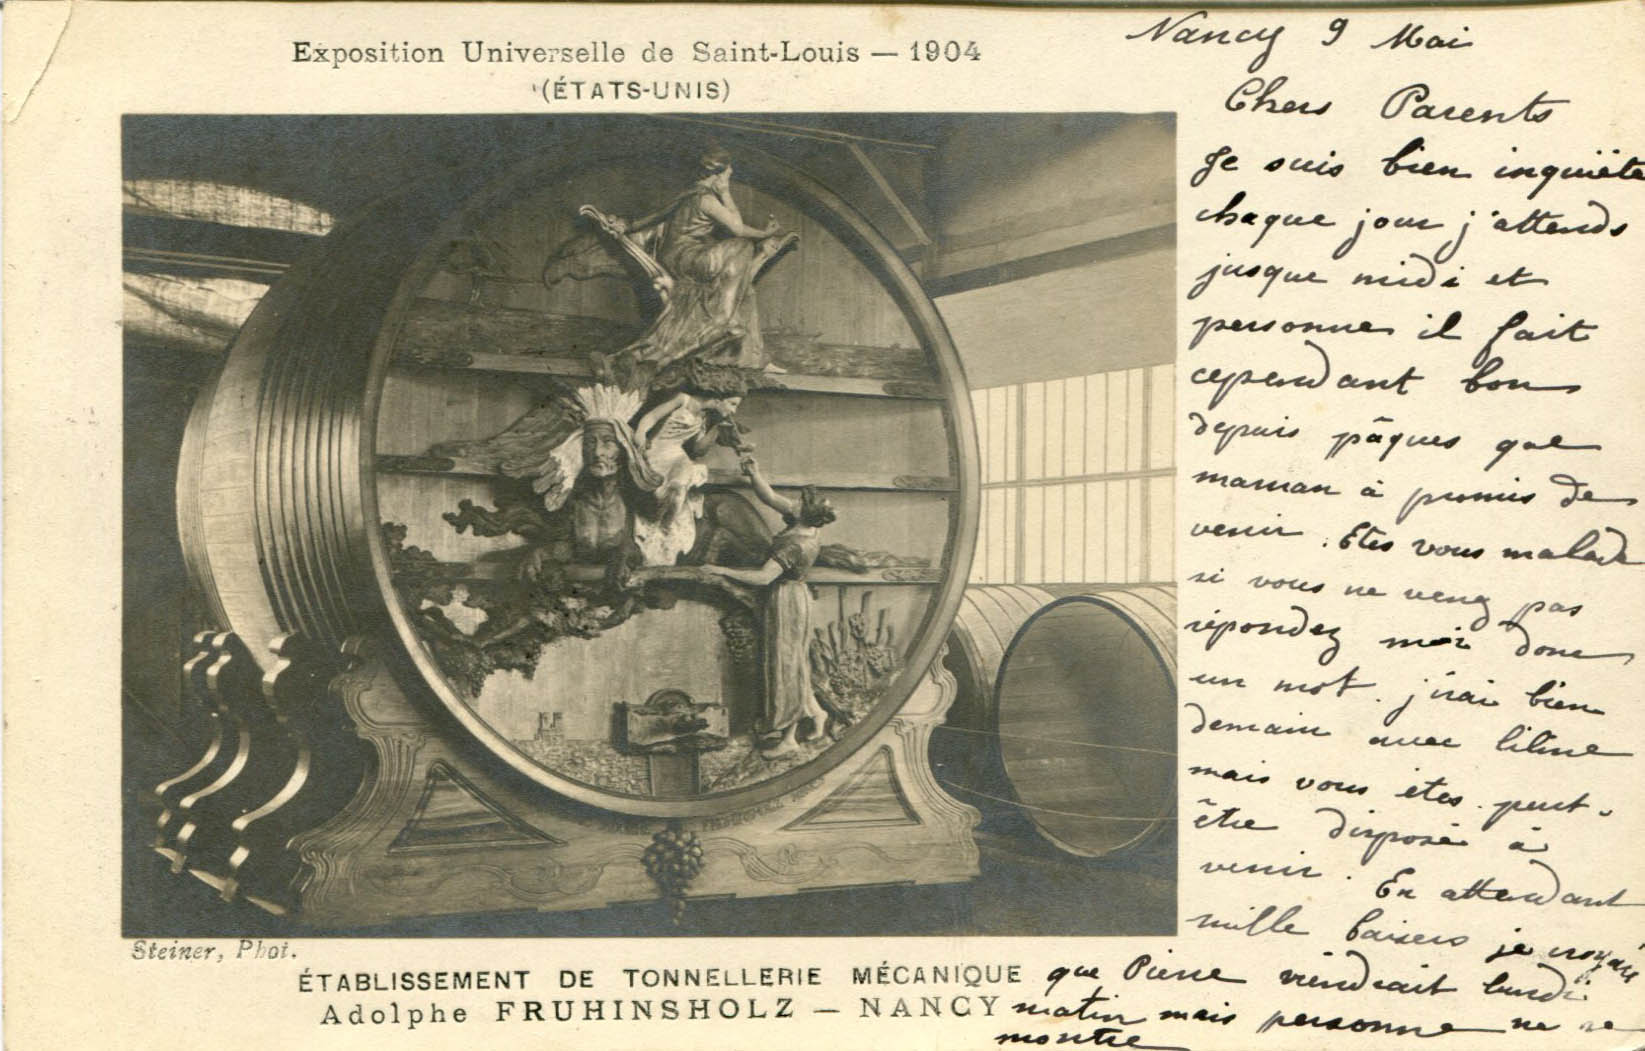 Exposition Universelle de Saint-Louis — 1904
(ÉTATS-UNIS)
Nancy 9 Mai
Chers Parents
Je suis bien inquiète
chaque jour j'attends
jusque midi et
personne il fait
cependant bon
depuis pâques que
maman à promis de
venir. Etes vous malade
si vous ne venez pas
répondez moi donc
un mot. j'irai bien
demain avec liline
mais vous êtes peut-
être disposé à
venir. En attendant
mille baisers je croyais
que Pierre viendrait lundi
matin mais personne ne se
montre
Steiner, Phot.
ÉTABLISSEMENT DE TONNELLERIE MÉCANIQUE
Adolphe FRUHINSHOLZ — NANCY